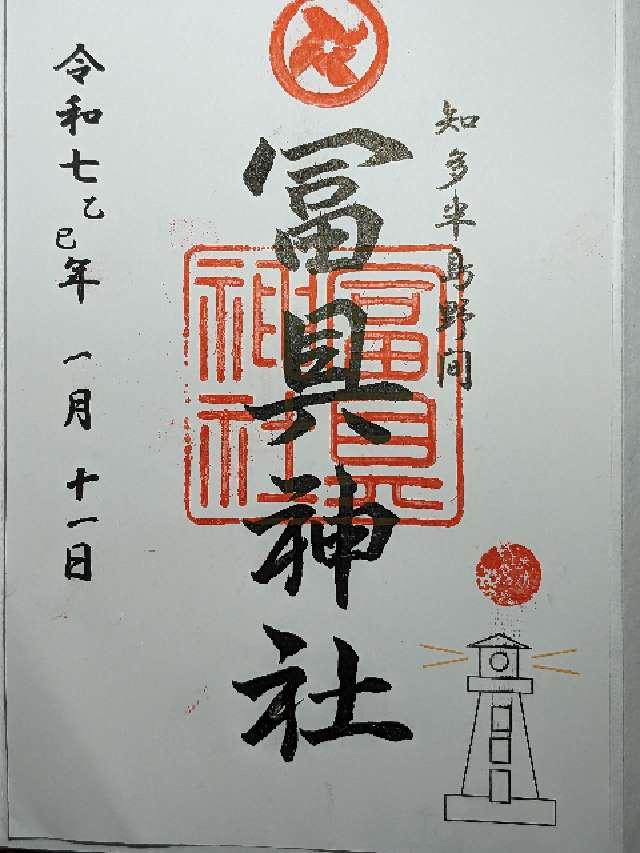 知多半島野間
冨具神社
冨具神社
令和七乙巳年 一月 十一日